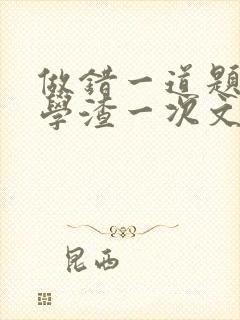 做错一道题
學渣一次文
昆西